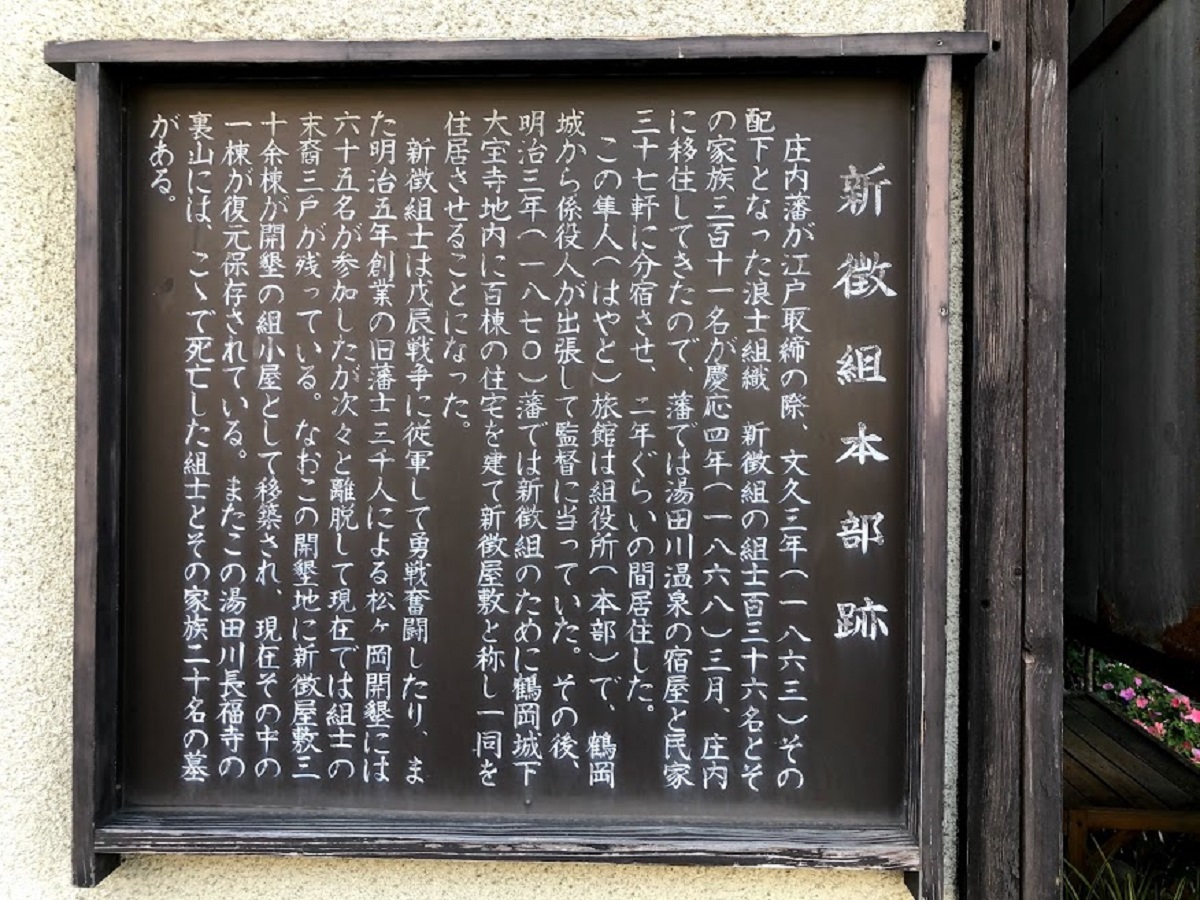 新徴組本部跡
庄内藩が江戸取締の際、文久三年(一八六三)その
配下となった浪士組織 新徴組の組士百三十六名とそ
の家族三百十一名が慶応四年(一八六八)三月、庄内
に移住してきたので、藩では湯田川温泉の宿屋と民家
三十七軒に分宿させ、二年ぐらいの間居住した。
この隼人(はやと)旅館は組役所(本部)で、鶴岡
城から係役人が出張して監督に当っていた。その後、
明治三年(一八七〇)藩では新徴組のために鶴岡城下
大宝寺地内に百棟の住宅を建て新徴屋敷と称し一同を
住居させることになった。
新徴組士は戊辰戦争に従軍して勇戦奮闘したり、ま
た明治五年創業の旧藩士三千人による松ヶ岡開墾には
六十五名が参加したが次々と離脱して現在では組士の
末裔三戸が残っている。なおこの開墾地に新徴屋敷三
十余棟が開墾の組小屋として移築され、現在その中の
一棟が復元保存されている。またこの湯田川長福寺の
裏山には、こゝで死亡した組士とその家族二十名の墓
がある。